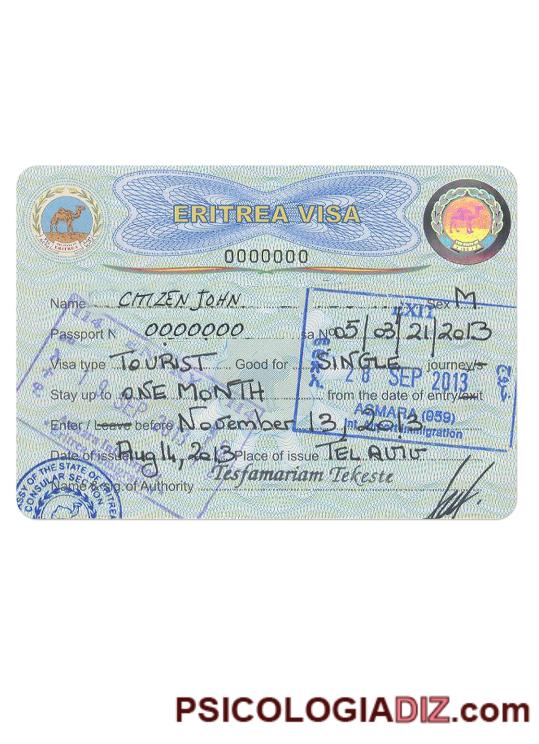 ERITREA VISA
0000000
Name CITIZEN JOHN Sex M
Passport N 0000000 sa Nº 05/03/21/2013
Visa type TOURIST Good for SINGLE journey/s
Stay up to ONE MONTH from the date of entry/exit
Enter / Leave before November 13, 2013
Date of issue Aug 14, 2013 Place of issue TEL AVIV
Name & sig. of Authority Tesfamariam Tekeste
EXIT
28 SEP 2013
ASMARA (059)
Immigration
SEP
SSY OF THE STATE OF ERITRE
CONSULAR SECTION
PSICOLOGIADIZ.com